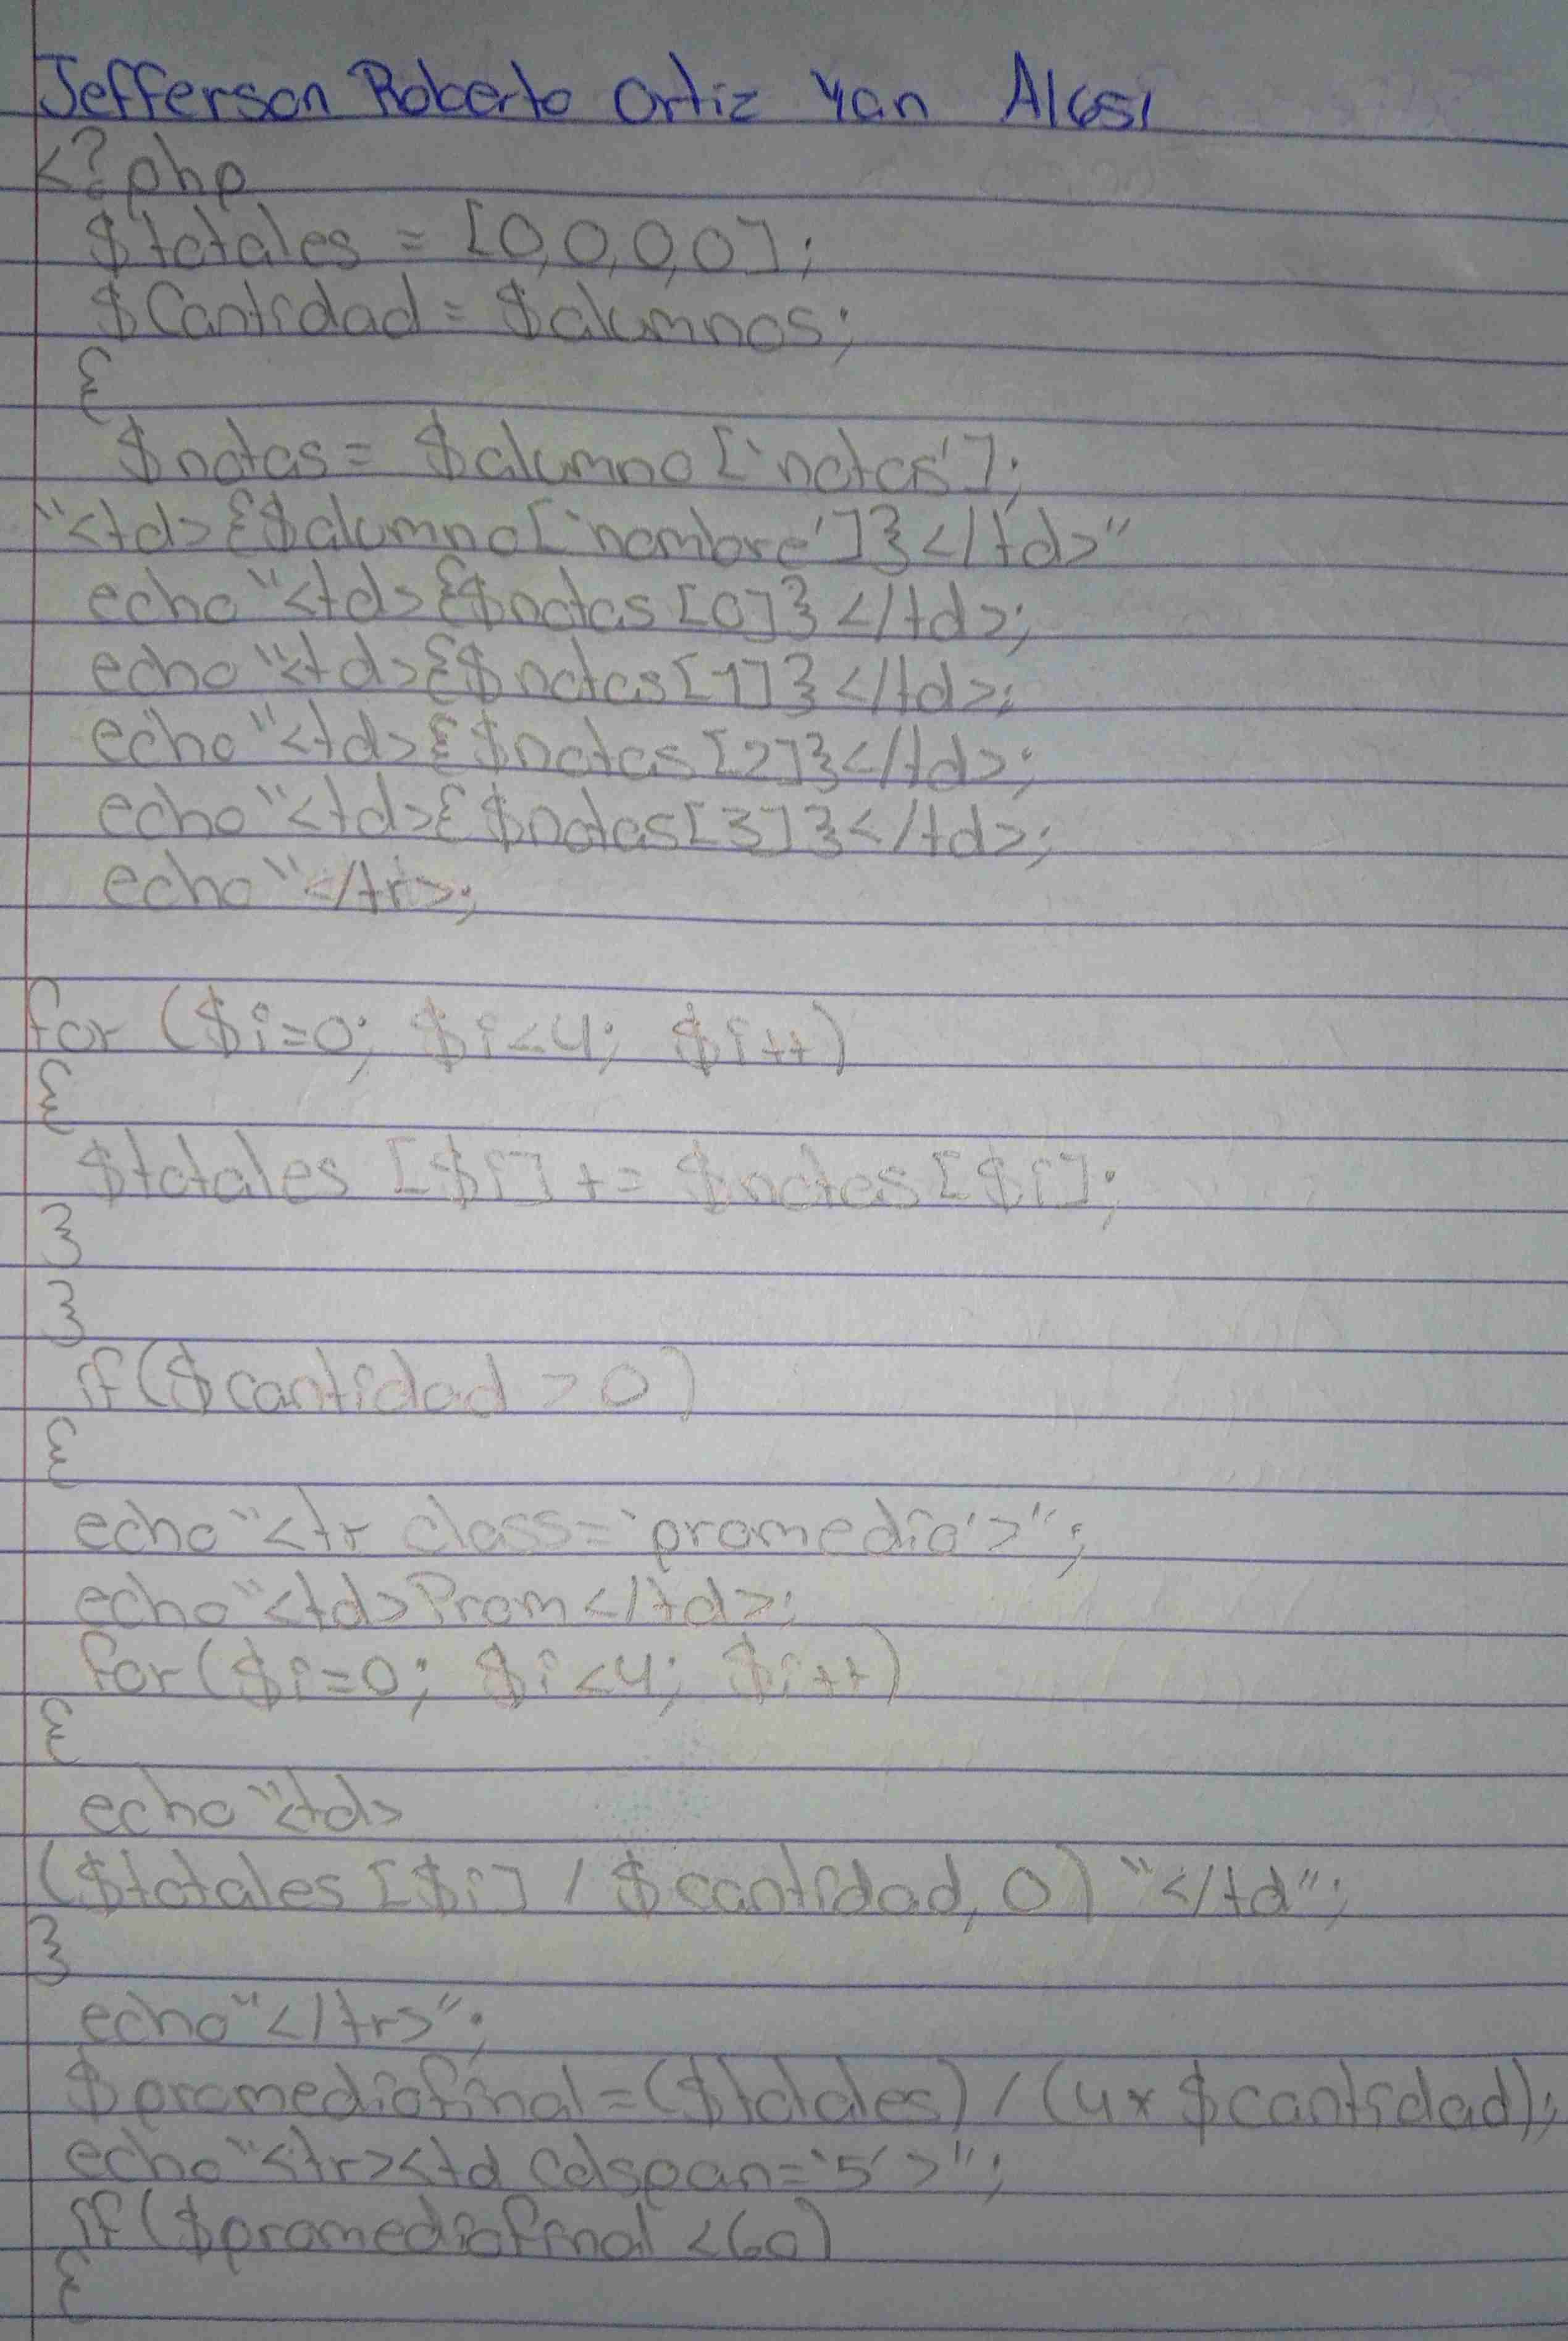 Jefferson Roberto Ortiz Yan
<?php
$totales = [0,0,0,0];
$Cantidad = $alumnos;
{
$notas = $alumno['notas'];
"<td>{$alumno['nombre']}</td>"
echo"<td>{$notas[0]}</td>;
echo"<td>{$notas[1]}</td>;
echo"<td>{$notas[2]}</td>;
echo"<td>{$notas[3]}</td>;
echo"</tr>;
for ($i=0; $i<4; $i++)
{
$totales [$i] += $notas[$i];
}
}
if($cantidad > 0)
{
echo"<tr class='promedio'>";
echo"<td>Prom</td>;
for($i=0; $i<4; $i++)
{
echo"<td>
($totales[$i] / $cantidad, 0) "</td";
}
echo"</tr>";
$promediofinal=($totales) / (4* $cantidad);
echo"<tr><td colspan='5'>";
if($promediofinal <60)
{